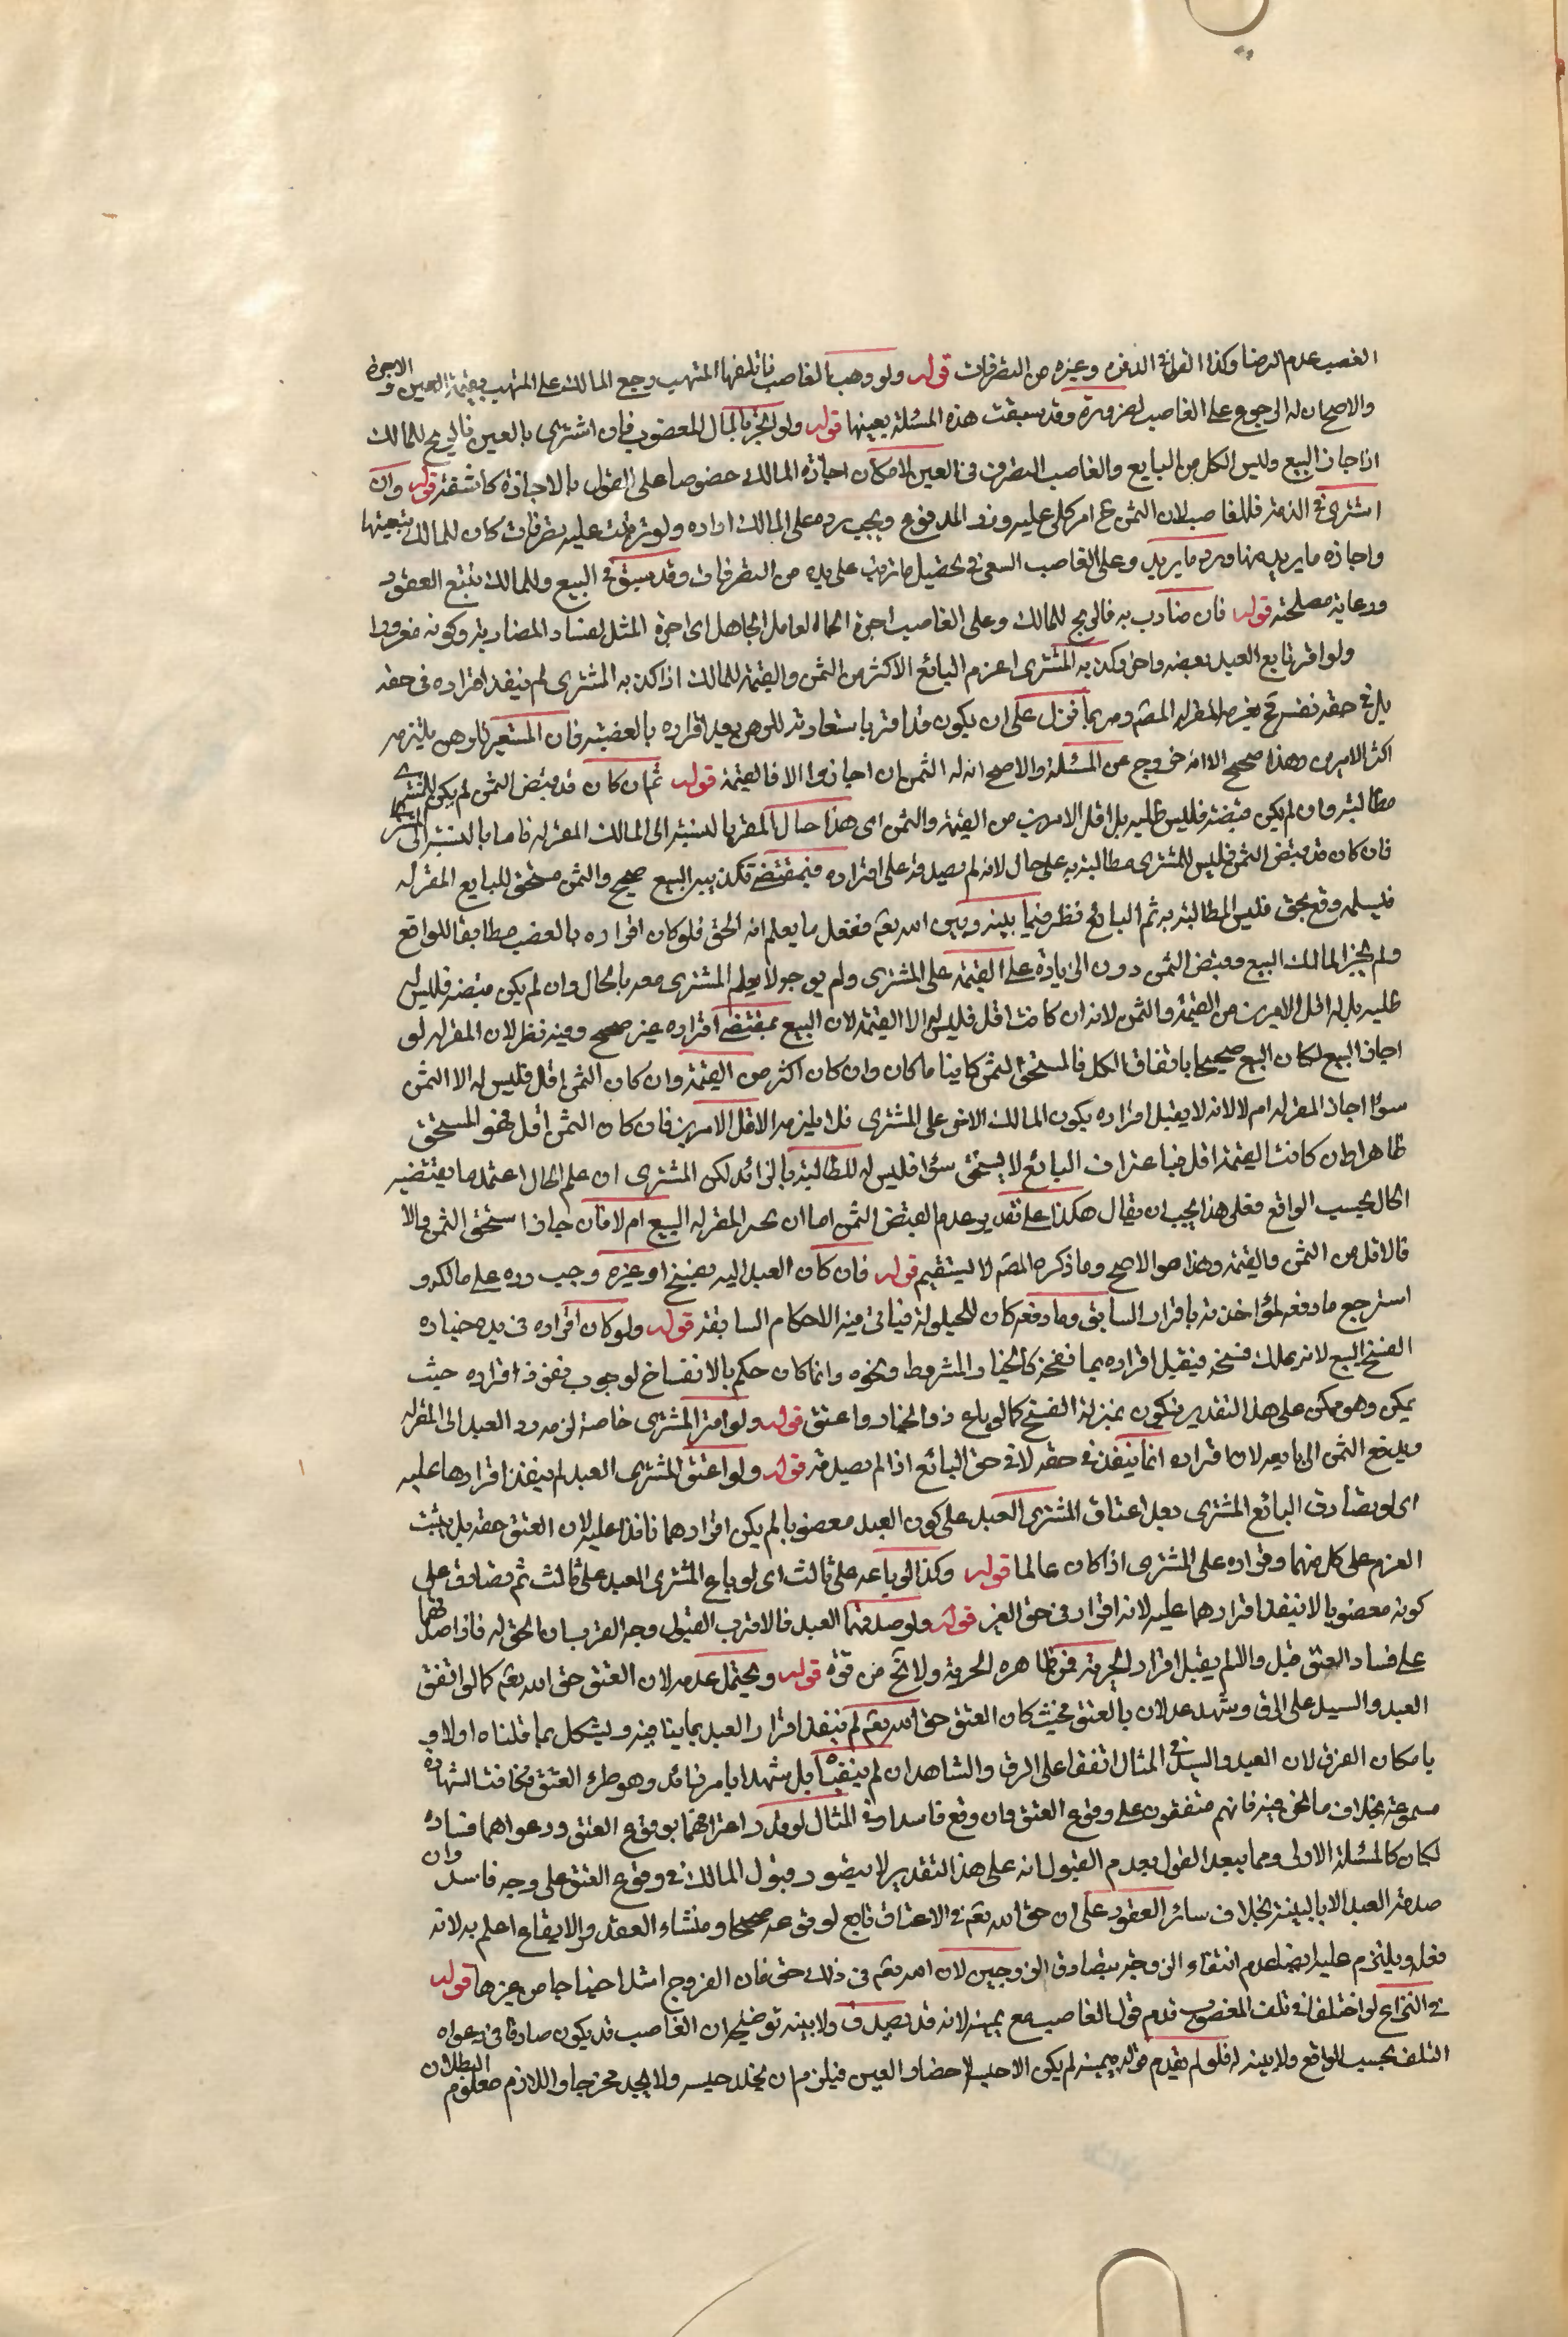 الغصب عدم الرضا وكذا القول في الدفن وغيره من التصرفات قوله ولو وهب الغاصب فاتلفها المتهب رجع المالك على المتهب بقيمة العين والاجرة
والاصح ان له الرجوع على الغاصب لغروره وقد سبقت هذه المسئلة بعينها قوله ولو اتجر بالمال المغصوب فان اشترى بالعين فالربح للمالك
اذا جاز البيع وليس لكل من البايع والغاصب التصرف في العين لامكان اجازة المالك خصوصا على القول بالاجازة كاشفة قوله وان
اشترى في الذمة فللغاصب لان الثمن ح امر كلي عليه وزر المدفوع ويجب رده على المالك اراده ولو ترتبت عليه تصرفات كان للمالك تتبعها
واجازة ما يريد منها ورد ما يريد وعلى الغاصب السعي في تحصيل ما ترتب على يده من التصرفات وقد سبق في البيع وللمالك تتبع العقود
ورعاية مصلحته قوله فان ضارب به فالربح للمالك وعلى الغاصب اجرة العامل الجاهل اي اجرة المثل لفساد المضاربة وكونه مغرورا
ولو اقر بايع العبد بغصبه واخر وكذبه المشتري اغرم البائع الاكثر من الثمن والقيمة للمالك اذا كذبه المشتري لم ينفذ اقراره في حقه
بل في حقه نفسه فح يغرم للمقر له المصم وربما نزل على ان يكون قد اقر باستعارته للرهن بعد اقراره بالغصبية فان المستعير للرهن يلتزم
اكثر الامرين وهذا صحيح الا انه خروج عن المسئلة والاصح انه له الثمن ان اجازوا الا فالقيمة قوله ثم ان كان قد قبض الثمن لم يكن للمشتري
مطالبته وان لم يكن قبضه فليس طلبه بل اقل الامرين من القيمة والثمن اي هذا حال المقر بالنسبة الى المالك المقر له فاما بالنسبة الى المشتري
فان كان قد قبض الثمن فليس للمشتري مطالبته به على حال لانه لم يصدقه على اقراره فبمقتضى تكذيبه البيع صحيح والثمن مستحق للبايع المقر له
فيسلمه وقع بحق فليس المطالبة به ثم البائع نظر فيما بينه وبين الله تعم ففعل ما يعلم انه الحق فلو كان اقراره بالغصب مطابقا للواقع
ولم يجز المالك البيع وقبض الثمن دون الزيادة على القيمة على المشتري ولم يوجولا يعلم المشتري معه بالحال وان لم يكن قبضه فليس له
طلبه بل له اقل الامرين من القيمة والثمن لانه ان كانت اقل فليس له الا القيمة لان البيع بمقتضى اقراره غير صحيح وفيه نظر لان المقر له لو
اجاز البيع لكان البيع صحيحا باتفاق الكل فالمستحق الثمن كاينا ما كان وان كان اكثر من القيمة وان كان الثمن اقل فليس له الا الثمن
سواء اجاز المقر له ام لا لانه لا يقبل اقراره بكون المالك الاخر على المشتري فلا يلزمه الاقل الامرين فان كان الثمن اقل فهو المستحق
ظاهرا وان كانت القيمة اقل فباعتراف البائع لا يستحق سواه فليس له المطالبة بالزائد لكن المشتري ان علم الحال اعتمد ما يقتضيه
الحال بحسب الواقع فعلى هذا يجب ان يقال هكذا على تقدير عدم القبض الثمن اما ان يجيز المقر له البيع ام لا فان جاز استحق الثمن والا
فالاقل من الثمن والقيمة وهذا هو الاصح وما ذكره المصم لا يستقيم قوله فان كان العبد اليه بفسخ او غيره وجب رده على مالكه و
استرجع ما دفعه لمؤاخذته باقراره السابق وما دفعه كان للحيلولة فياتي فيه الاحكام السابقة قوله ولو كان اقراره في مدة خياره
انفسخ البيع لانه يملك فسخه فيقبل اقراره بما يفسخه كالخيار المشروط ونحوه وانما كان حكم بالانفساخ لوجوب نفوذ اقراره حيث
يمكن وهو ممكن على هذا التقدير فيكون بمنزلة الفسخ كما لو باع ذو الخيار واعتق قوله ولو اقر المشتري خاصة لزمه رد العبد الى المقر له
ويدفع الثمن الى بايعه لان اقراره انما ينفذ في حقه لا في حق البائع اذا لم يصدقه قوله ولو اعتق المشتري العبد لم ينفذ اقرارهما عليه
اي لو تصادق البائع المشتري بعد اعتاق المشتري العبد على كون العبد مغصوبا لم يكن اقرارهما نافذا عليه لان العتق حقه بل يثبت
الغرم على كل منهما وقراره على المشتري اذا كان عالما قوله وكذا لو باعه على ثالث اي لو باع المشتري العبد على ثالث ثم تصادق على
كونه مغصوبا لا ينفذ اقرارهما عليه لانه اقرار في حق الغير قوله ولو صدقهما العبد فالاقرب القبول وجه القرب ان الحق له فاذا صدقهما
على فساد العتق قبل والا لم يقبل اقرار الحرية فمن ظاهره الحرية ولا يخ من قوة قوله ويحتمل عدمه لان العتق حق الله تعم كما لو اتفق
العبد والسيد على الرق وشهد عدلان بالعتق فحيث كان العتق حق الله تعم لم ينفذ اقرار العبد بما ينافيه ويشكل بما قلناه اولا و
بامكان الفرق لان العبد والسيد في المثال اتفقا على الرق والشاهدان لم ينفياه بل شهدا بامر زائد وهو طرو العتق فكانت الشهادة
مسموعة بخلاف ما نحن فيه فانهم متفقون على وقوع العتق وان وقع فاسدا وفي المثال لو قدر اعترافهما بوقوع العتق ودعواهما فساده
لكان كالمسئلة الاولى ومما يبعد القول بعدم القبول انه على هذا التقدير لا يتصور قبول المالك في وقوع العتق على وجه فاسد وان
صدقه العبد الا بالبينة بخلاف سائر العقود على ان حق الله تعم في الاعتاق تابع لوقوعه صحيحا ومنشاء العقد والايقاع اعلم به لانه
فعله ويلتزم عليه ايضا عدم انتفاء الزوجية بتصادق الزوجين لان الله تعم في ذلك حق فان الفروج اشد احتياجا من غيرها قوله
في النزاع لو اختلفا في تلف المغصوب قدم قول الغاصب مع يمينه لانه قد يصدق ولا بينة توضيحه ان الغاصب قد يكون صادقا في دعواه
التلف بحسب الواقع ولا بينة له فلو لم يقدم قوله بيمينه لم يكن الا حبسه لاحضار العين فيلزم ان يخلد حبسه ولا يجد مخرجا واللازم معلوم البطلان